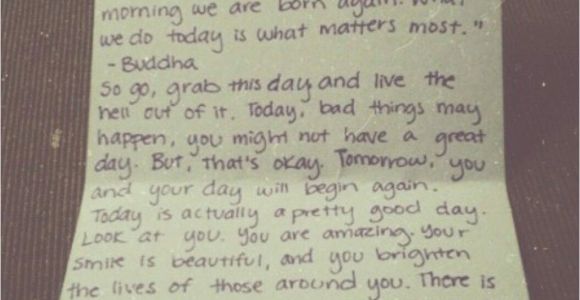 morning we are born again. What
we do today is what matters most."
- Buddha
So go, grab this day and live the
hell out of it. Today, bad things may
happen, you might not have a great
day. But, that's okay. Tomorrow, you
and your day will begin again.
Today is actually a pretty good day.
Look at you. You are amazing. Your
smile is beautiful, and you brighten
the lives of those around you. There is